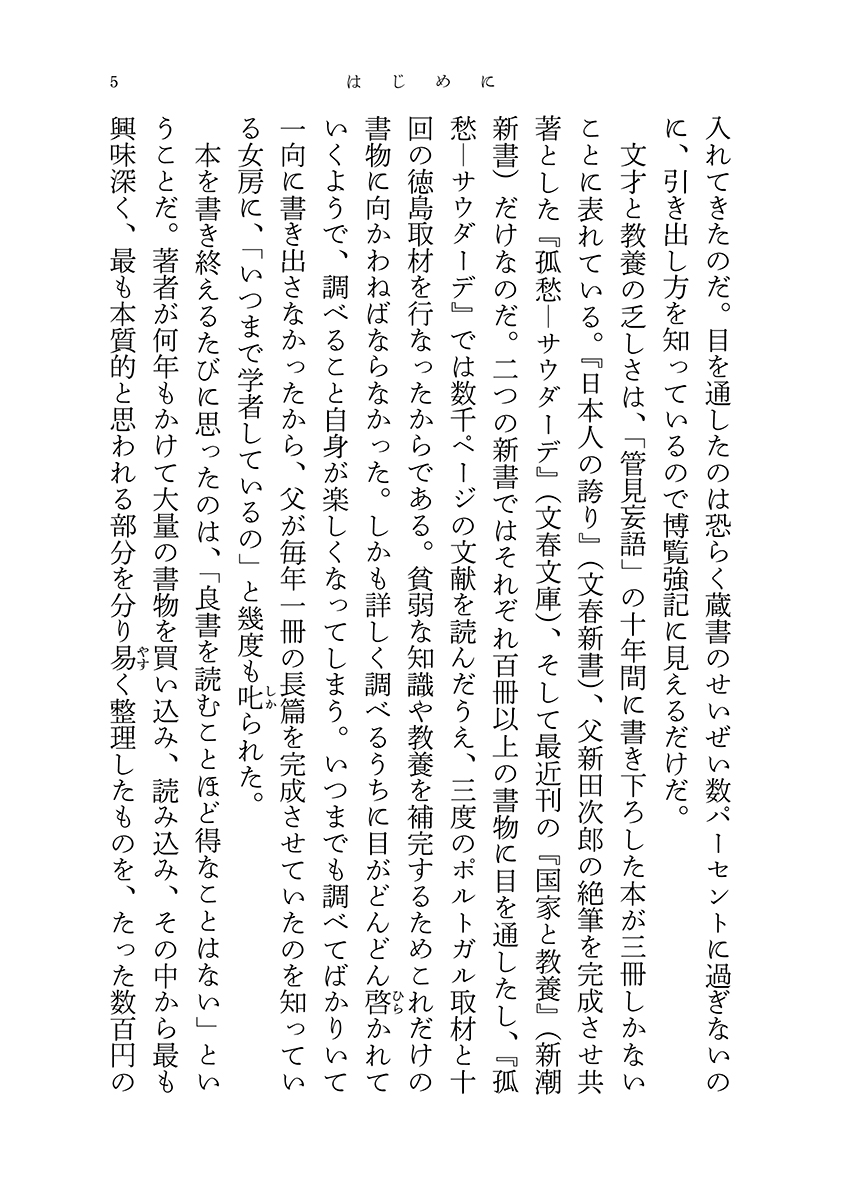 5
はじめに
入れてきたのだ。目を通したのは恐らく蔵書のせいぜい数パーセントに過ぎないの
に、引き出し方を知っているので博覧強記に見えるだけだ。
文才と教養の乏しさは、「管見妄語」の十年間に書き下ろした本が三冊しかない
ことに表れている。『日本人の誇り』（文春新書）、父新田次郎の絶筆を完成させ共
著とした『孤愁―サウダーデ』（文春文庫）、そして最近刊の『国家と教養』（新潮
新書）だけなのだ。二つの新書ではそれぞれ百冊以上の書物に目を通したし、『孤
愁―サウダーデ』では数千ページの文献を読んだうえ、三度のポルトガル取材と十
回の徳島取材を行なったからである。貧弱な知識や教養を補完するためこれだけの
書物に向かわねばならなかった。しかも詳しく調べるうちに目がどんどん啓かれて
いくようで、調べること自身が楽しくなってしまう。いつまでも調べてばかりいて
一向に書き出さなかったから、父が毎年一冊の長篇を完成させていたのを知ってい
る女房に、「いつまで学者しているの」と幾度も叱られた。
本を書き終えるたびに思ったのは、「良書を読むことほど得なことはない」とい
うことだ。著者が何年もかけて大量の書物を買い込み、読み込み、その中から最も
興味深く、最も本質的と思われる部分を分り易く整理したものを、たった数百円の